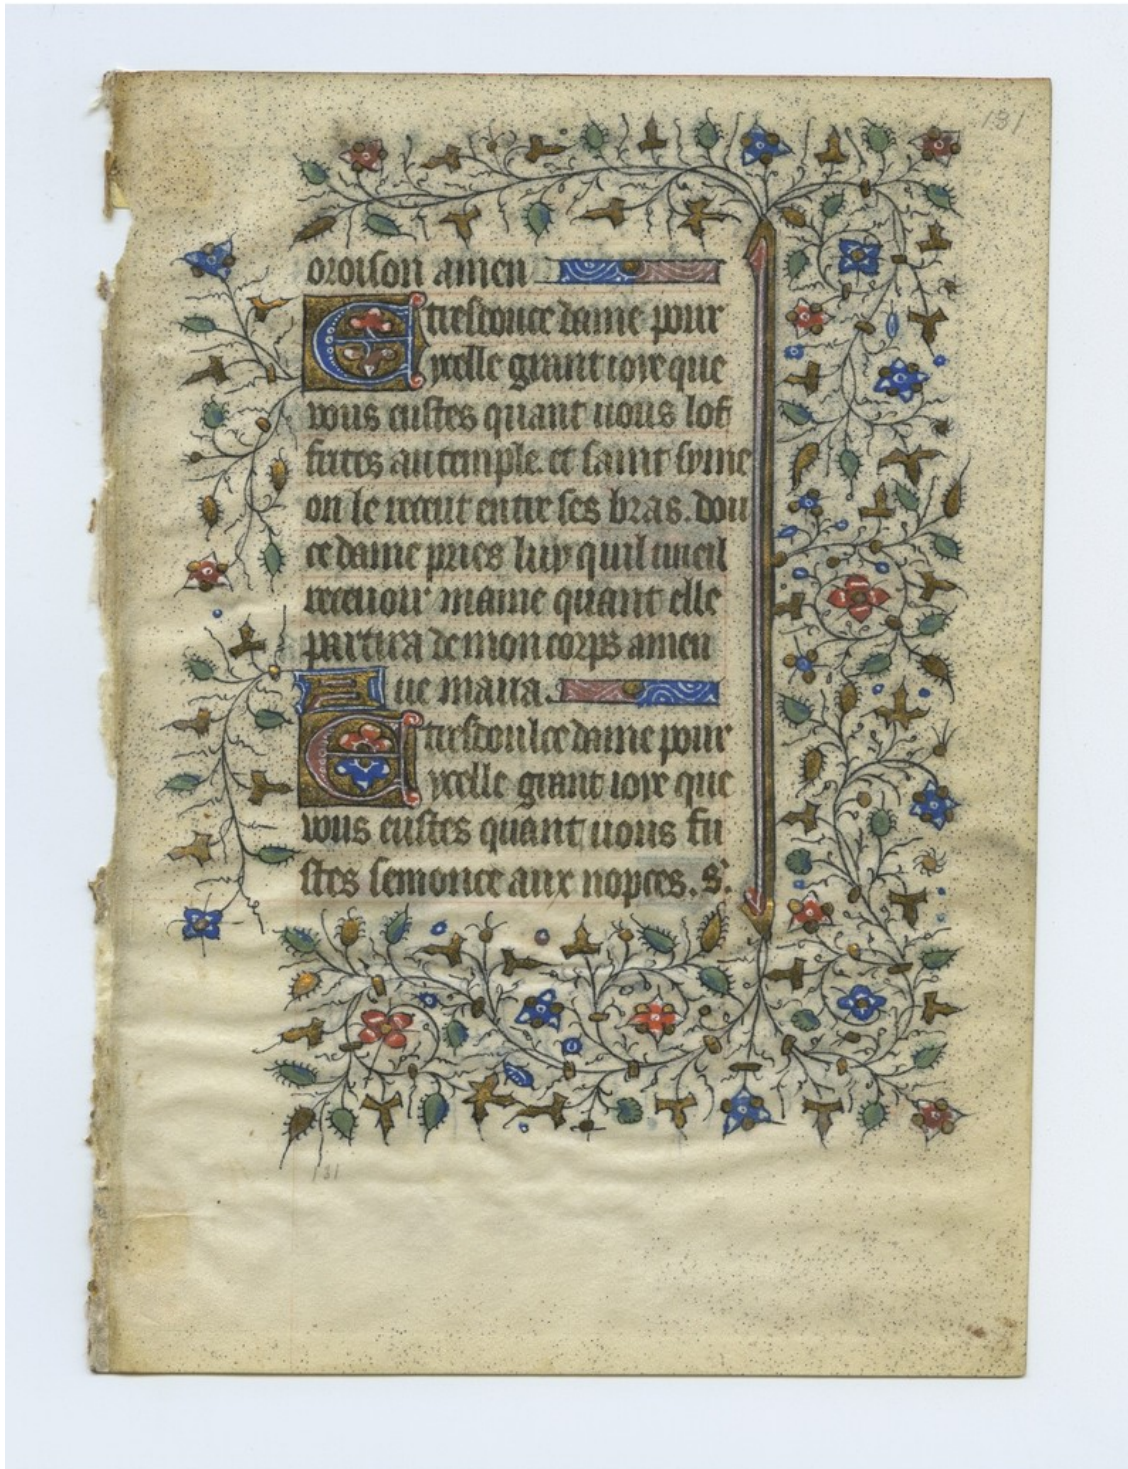 131
oroison amen
E tresdouce dame pour
ycelle grant ioye que
vous eustes quant uous lof
frites au temple. et saint syme
on le receut entre ses bras. dou
ce dame pries luy quil uueil
receuoir mame quant elle
partira de mon corps amen
Aue maria.
E tresdoulce dame pour
ycelle grant ioye que
vous eustes quant uous fu
stes semonce aux nopces. s'.
131